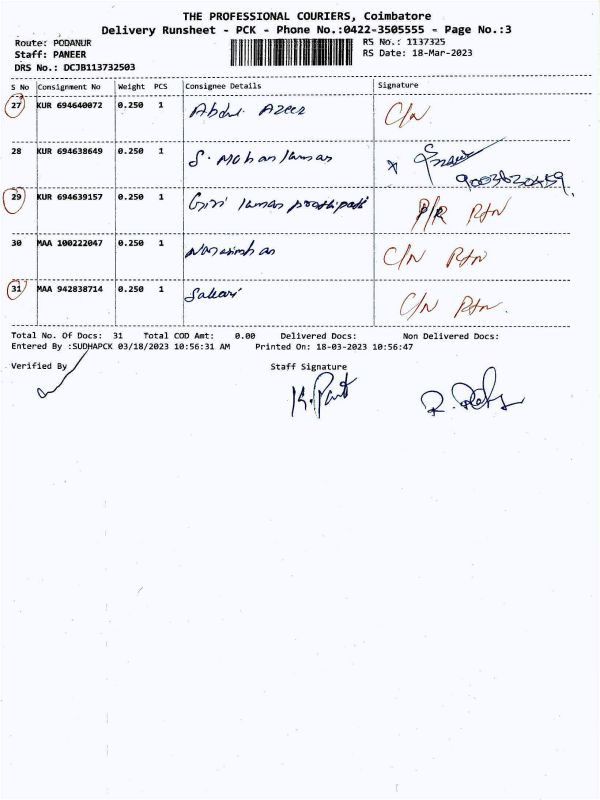 THE PROFESSIONAL COURIERS, Coimbatore
Delivery Runsheet - PCK - Phone No.:0422-3505555 - Page No.:3
Route: PODANUR
RS No.: 1137325
Staff: PANEER
RS Date: 18-Mar-2023
DRS No.: DCJB113732503
S No Consignment No Weight PCS Consignee Details Signature
27 KUR 694640072 0.250 1 Abdul Azeez C/N
28 KUR 694638649 0.250 1 S. Mohan
29 KUR 694639157 0.250 1 Giri P/R Rtn
30 MAA 100222047 0.250 1 Narasimhan C/N Rtn
31 MAA 942838714 0.250 1 C/N Rtn.
Total No. Of Docs: 31 Total COD Amt: 0.00 Delivered Docs: Non Delivered Docs:
Entered By :SUDHAPCK 03/18/2023 10:56:31 AM Printed On: 18-03-2023 10:56:47
Verified By Staff Signature